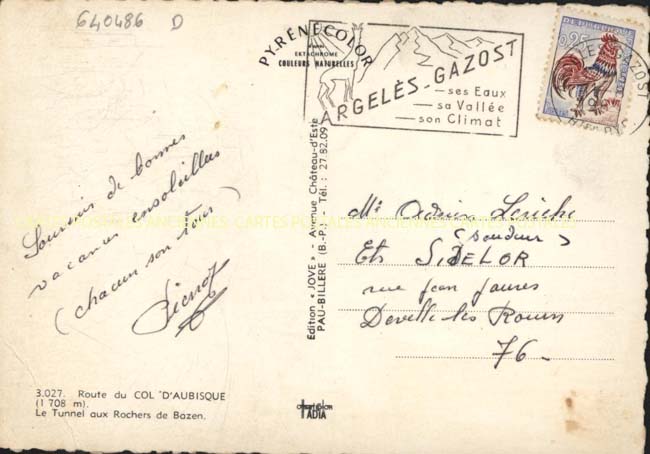 640486 D
PY-RÉNÉCOLOR
EKTACHROME
COULEURS NATURELLES
ARGELÈS-GAZOST
— ses Eaux
— sa Vallée
— son Climat
0,25
GAZOST
Souvenir de bonnes
vacances ensoleillées
(chacun son tour)
Pierrot
Édition « JOVE » - Avenue Château-d'Este
PAU-BILLÈRE (B.-P.) - Tél. : 27.82.09
Mr Adrien
(soudeur)
Ets SIDELOR
rue jean jaures
Deville les Rouen
76 -
CARTES POSTALES ANCIENNES
3.027. Route du COL D'AUBISQUE
(1 708 m).
Le Tunnel aux Rochers de Bazen.